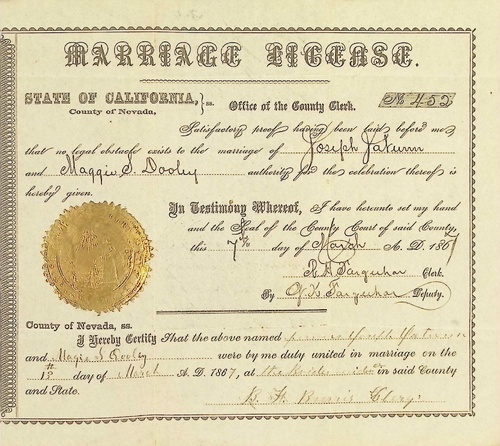 MARRIAGE LICENSE.
STATE OF CALIFORNIA, } ss. Office of the County Clerk. No 452
County of Nevada,
Satisfactory proof having been laid before me
that no legal obstacle exists to the marriage of Joseph
and Maggie S. Dooley authority for the celebration thereof is
hereby given.
In Testimony Whereof, I have hereunto set my hand
and the Seal of the County Court of said County
this 7th day of March A. D. 1867
R. H. Farquhar Clerk.
By Farquhar Deputy.
County of Nevada, ss.
I Hereby Certify That the above named Joseph
and Magie S Dooley were by me duly united in marriage on the
day of March A. D. 1867, at the in said County
and State.